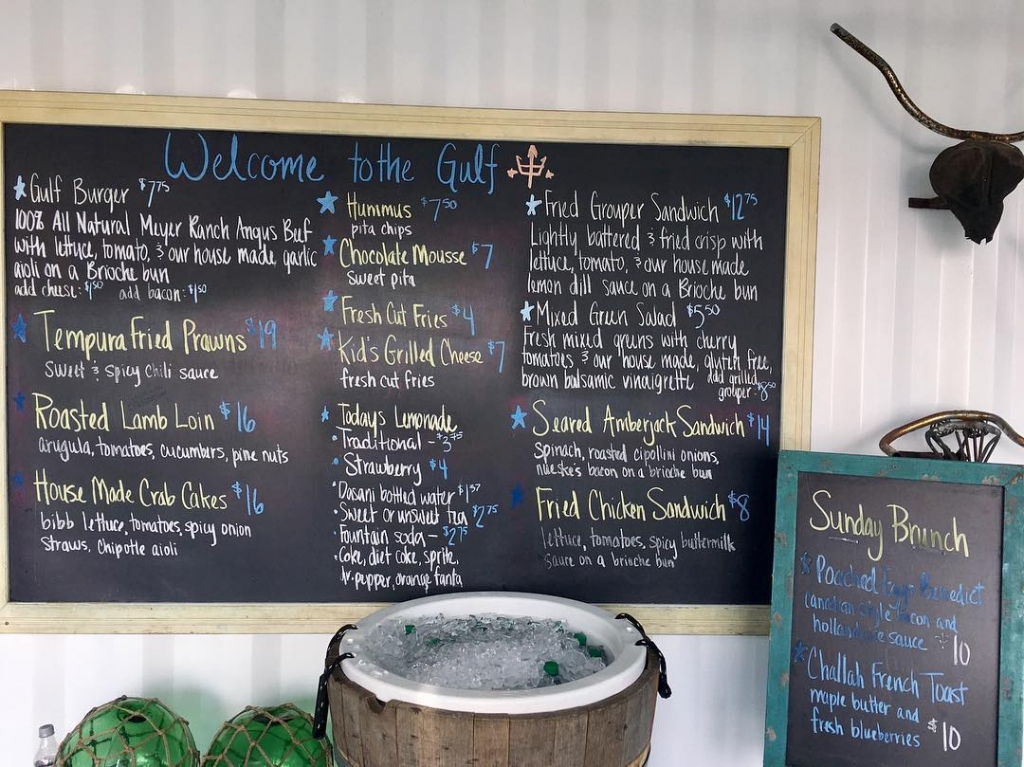 Welcome to the Gulf
Gulf Burger $7.75
100% All Natural Meyer Ranch Angus Beef
with lettuce, tomato, & our house made garlic
aioli on a Brioche bun
add cheese: $1.50 add bacon: $1.50
Tempura Fried Prawns $19
Sweet & spicy chili sauce
Roasted Lamb Loin $16
arugula, tomatoes, cucumbers, pine nuts
House Made Crab Cakes $16
bibb lettuce, tomatoes, spicy onion
straws, chipotle aioli
Hummus $7.50
pita chips
Chocolate Mousse $7
sweet pita
Fresh Cut Fries $4
Kid's Grilled Cheese $7
fresh cut fries
Todays Lemonade
Traditional –
Strawberry $4
Dasani bottled water
Sweet or unsweet tea $2.75
Fountain soda – $2.75
Coke, diet coke, sprite,
dr. pepper, orange fanta
Fried Grouper Sandwich $12.75
Lightly battered & fried crisp with
lettuce, tomato, & our house made
lemon dill sauce on a Brioche bun
Mixed Green Salad $5.50
Fresh mixed greens with cherry
tomatoes & our house made, gluten free,
brown balsamic vinaigrette add grilled
grouper: $8.50
Seared Amberjack Sandwich $14
Spinach, roasted cipollini onions,
nueske's bacon on a brioche bun
Fried Chicken Sandwich $8
lettuce, tomatoes, spicy buttermilk
sauce on a brioche bun
Sunday Brunch
Poached Eggs Benedict
canadian style bacon and
hollandaise sauce $10
Challah French Toast
maple butter and
fresh blueberries $10